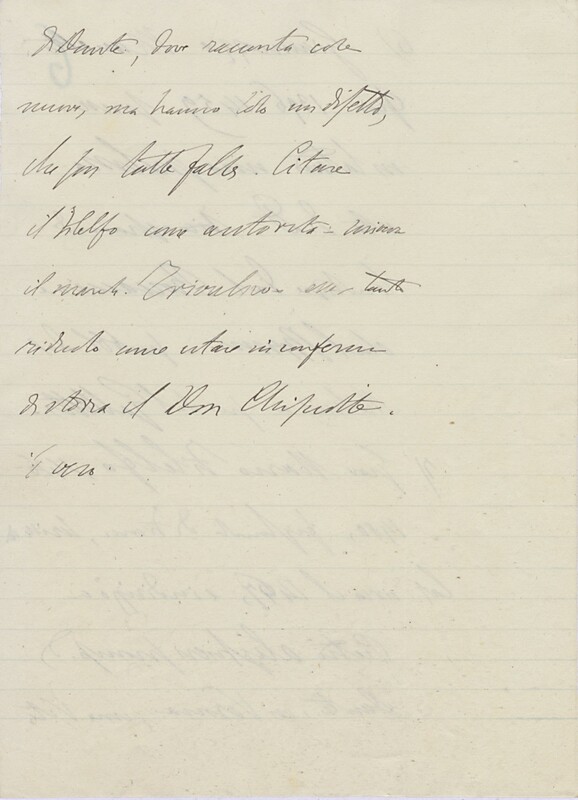 di Dante, dove racconta cose
nuove, ma hanno solo un difetto,
che son tutte false. Citare
il Filelfo come autorità
il march. Trivulzio era tanto
ridicolo come citare in conferma
di storia il Don Chisciotte.
È vero.